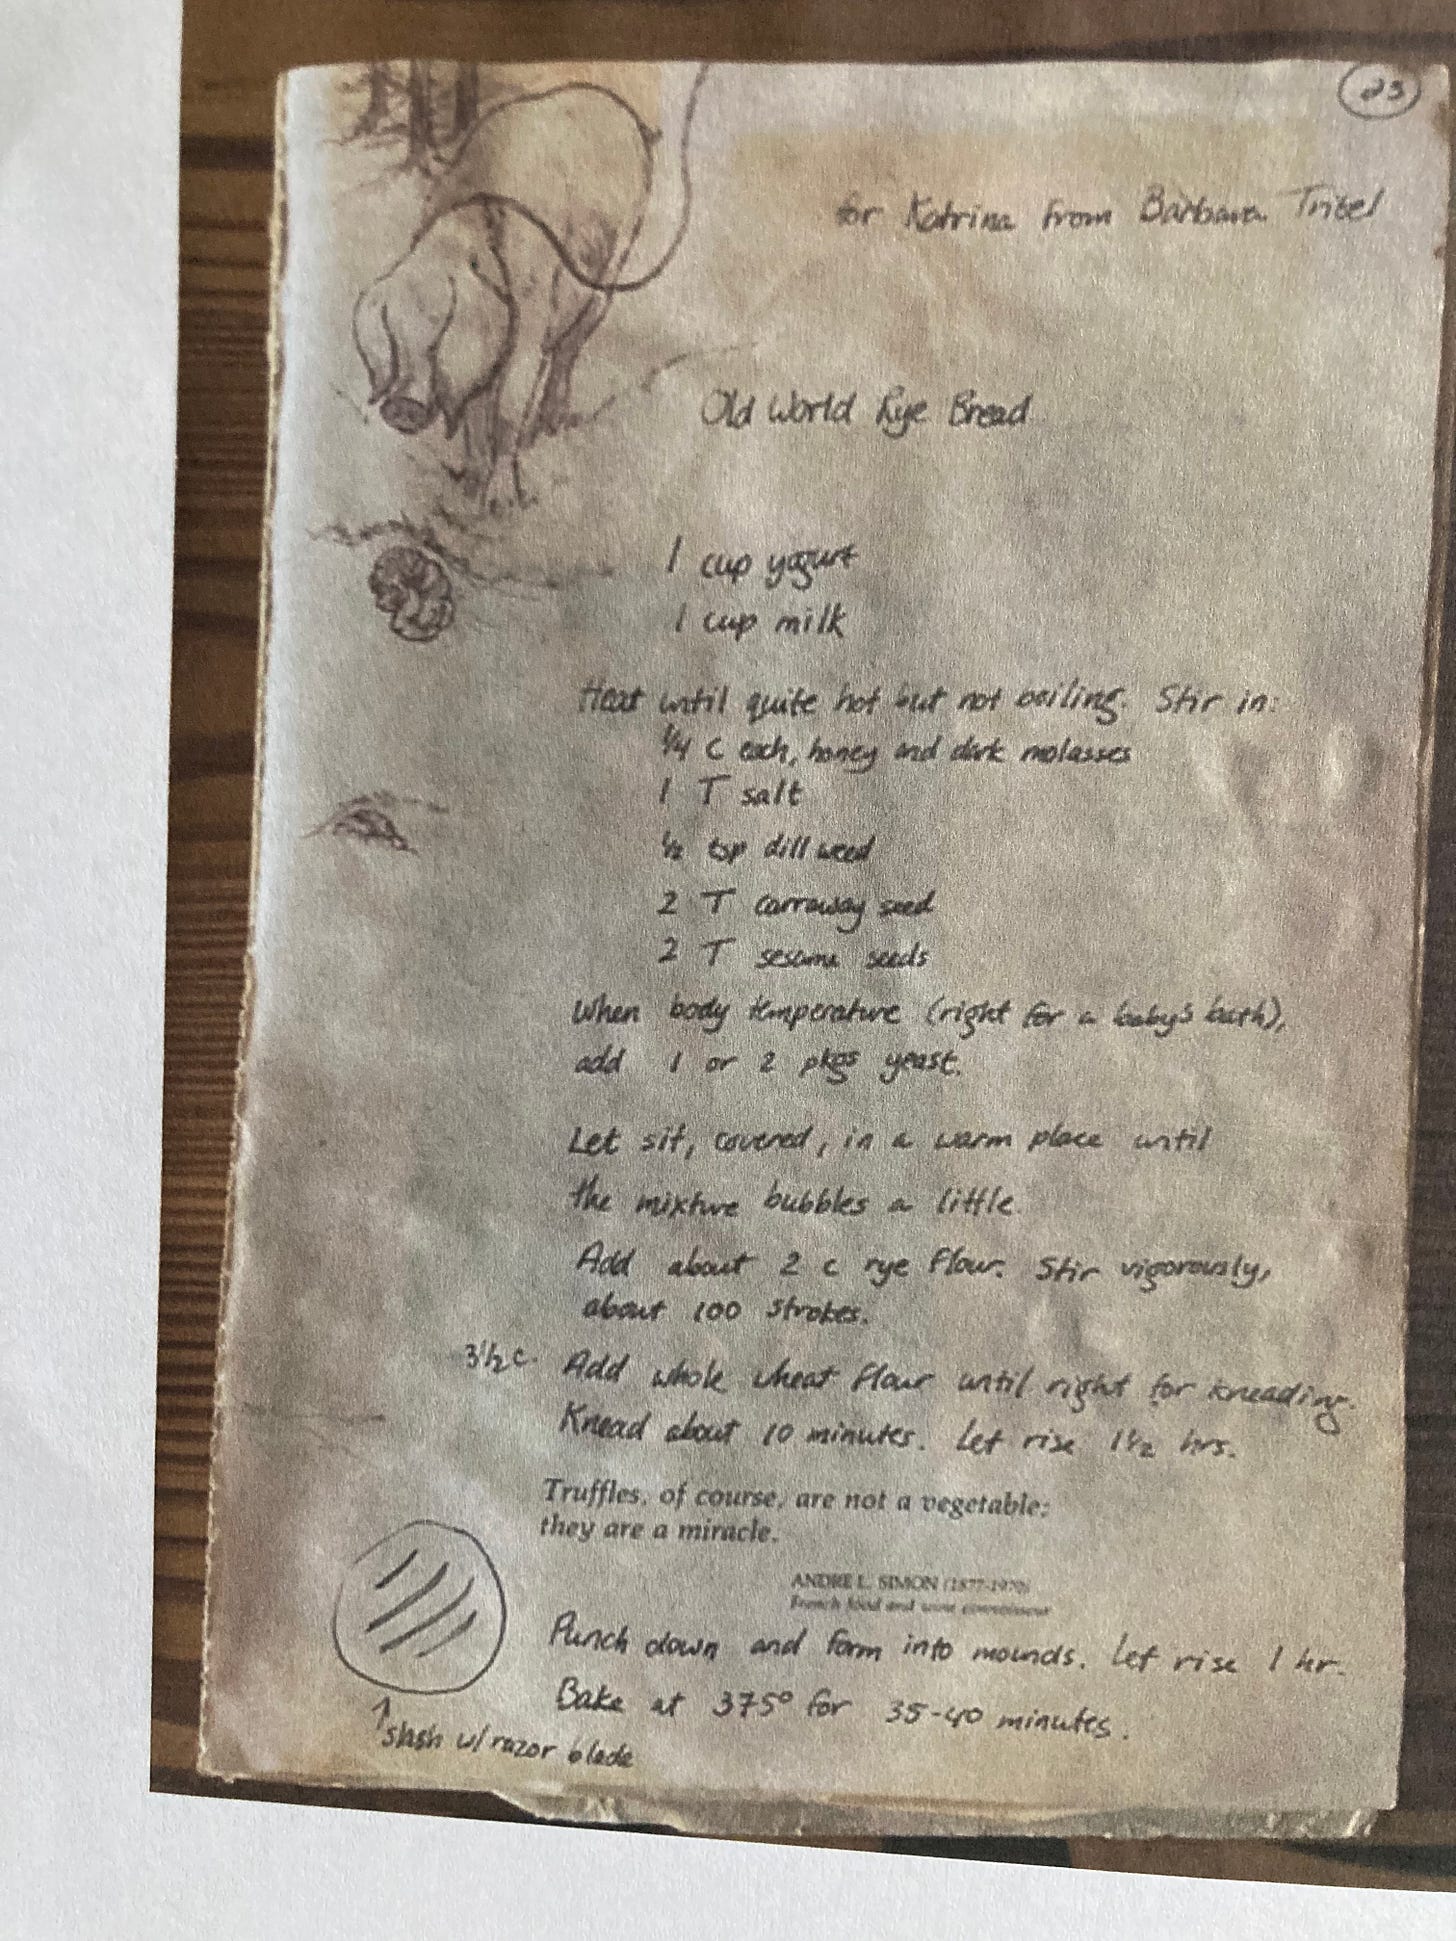 23
for Katrina from Barbara Tribel
Old World Rye Bread
1 cup yogurt
1 cup milk
Heat until quite hot but not boiling. Stir in:
1/4 c each, honey and dark molasses
1 T salt
1/2 tsp dill weed
2 T carraway seed
2 T sesame seeds
When body temperature (right for a baby's bath),
add 1 or 2 pkgs yeast.
Let sit, covered, in a warm place until
the mixture bubbles a little.
Add about 2 c rye flour. Stir vigorously,
about 100 strokes.
3 1/2 c. Add whole wheat flour until right for kneading.
Knead about 10 minutes. Let rise 1 1/2 hrs.
Truffles, of course, are not a vegetable;
they are a miracle.
ANDRE L. SIMON (1877-1970)
French food and wine connoisseur
Punch down and form into mounds. Let rise 1 hr.
Bake at 375° for 35-40 minutes.
↑ slash w/ razor blade